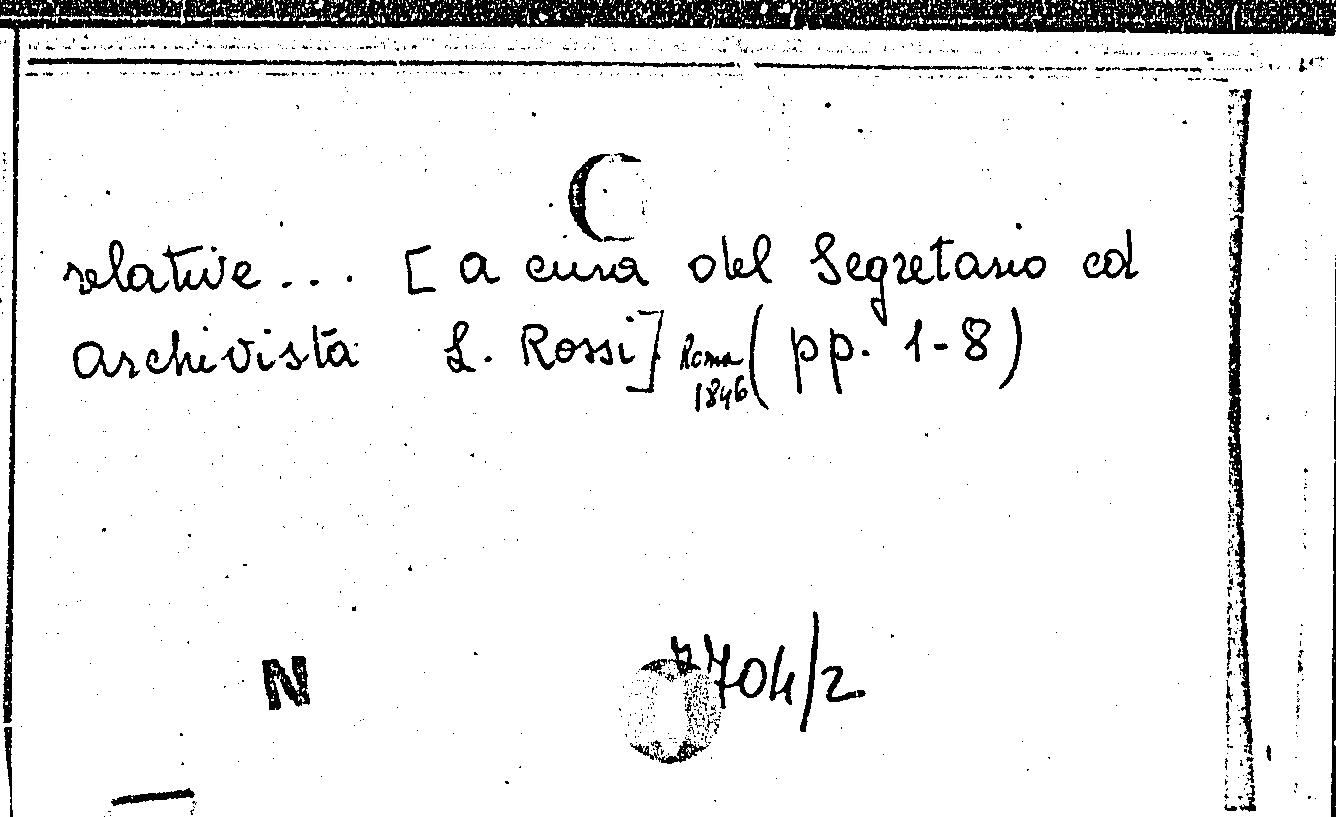 C
relative... [a cura del Segretario ed
archivista L. Rossi] Roma 1846 (pp. 1-8)
N 7704/2